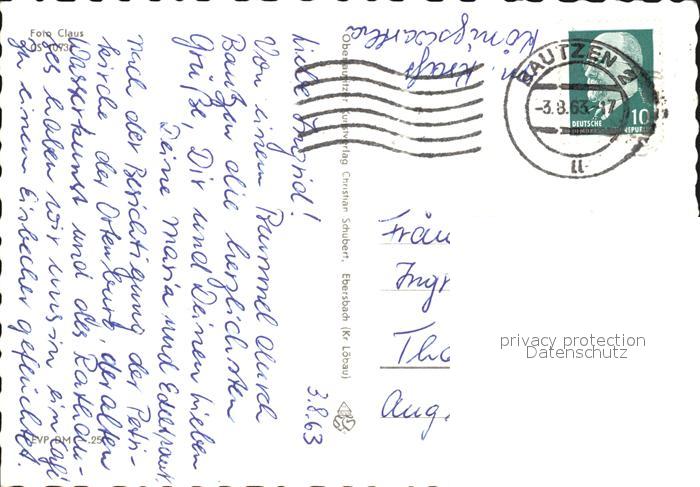 Foto Claus
Königswartha
BAUTZEN 2
-3.8.63-17
DEUTSCHE
10
Oberlausitzer Kunstverlag Christian Schubert, Ebersbach (Kr Löbau)
3.8.63
Liebe Ingrid!
Von einem Bummel durch
Bautzen die herzlichsten
Grüße, Dir und Deinen Lieben
Deine Maria und Edeltraut.
Nach der Besichtigung der Petri-
kirche der Ortenburg, der alten
Wasserkunst und des Rathau-
ses haben wir uns in ein Café
zu einem Eisbecher geflüchtet.
EVP DM -.25
Fräu
Ingr
Tho
Aug.
privacy protection
Datenschutz